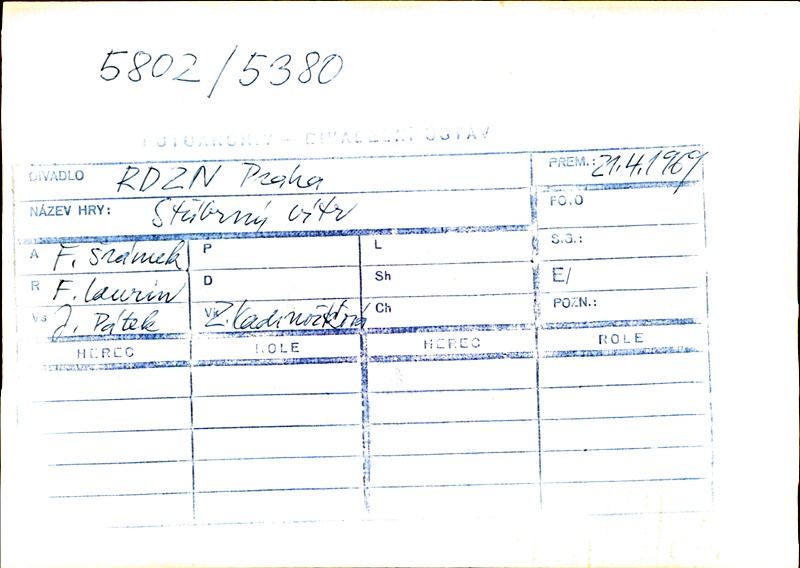 5802/5380
FOTOARCHIV – DIVADELNÍ ÚSTAV
DIVADLO RDZN Praha PREM.: 21.4.1969
NÁZEV HRY: Stříbrný vítr FOTO
A F. Šrámek P L S.G.:
R F. Laurin D Sh E/
Vs J. Pátek Vk Z. Kadrnožková Ch POZN.:
HEREC ROLE HEREC ROLE